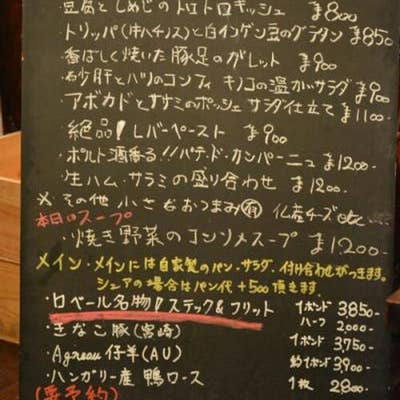 ・豆腐としめじのトロトロキッシュ ¥800
・トリッパ(牛ハチノス)と白インゲン豆のグラタン ¥850
・香ばしく焼いた豚足のガレット ¥900
・砂肝とハツのコンフィ キノコの温かいサラダ ¥900
・アボカドとササミのポッシェ サラダ仕立て ¥1100
・絶品!レバーペースト ¥900
・ポルト酒香る!!パテ・ド・カンパーニュ ¥1200-
・生ハム・サラミの盛り合わせ ¥1200-
※その他 小さなおつまみ有 仏産チーズetc
本日のスープ
・焼き野菜のコンソメスープ ¥1200-
メイン・メインには自家製のパン、サラダ、付け合わせがつきます。
シェアの場合はパン代+500頂きます。
・ロベール名物!ステック&フリット 1ポンド 3850-
ハーフ 2,000-
・きなこ豚(宮崎) 1ポンド 3750-
・Agneau 仔羊(AU) 約1ポンド 3900-
・ハンガリー産 鴨ロース 1枚 2800-
(要予約)